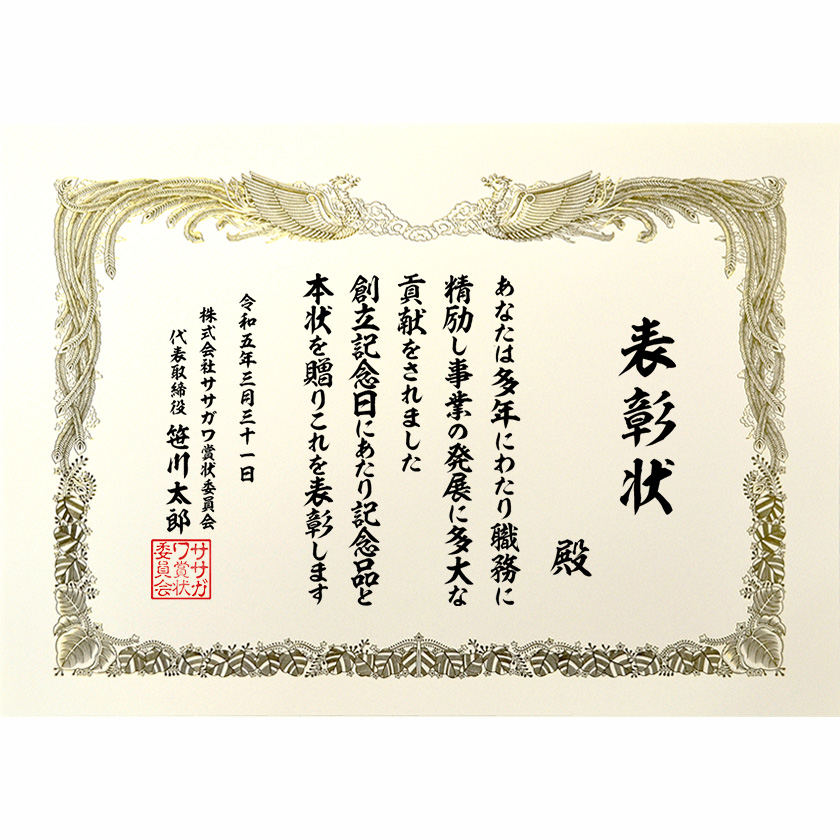 表彰状
殿
あなたは多年にわたり職務に
精励し事業の発展に多大な
貢献をされました
創立記念日にあたり記念品と
本状を贈りこれを表彰します
令和五年三月三十一日
株式会社ササガワ賞状委員会
代表取締役 笹川太郎
ササガ
ワ賞状
委員会